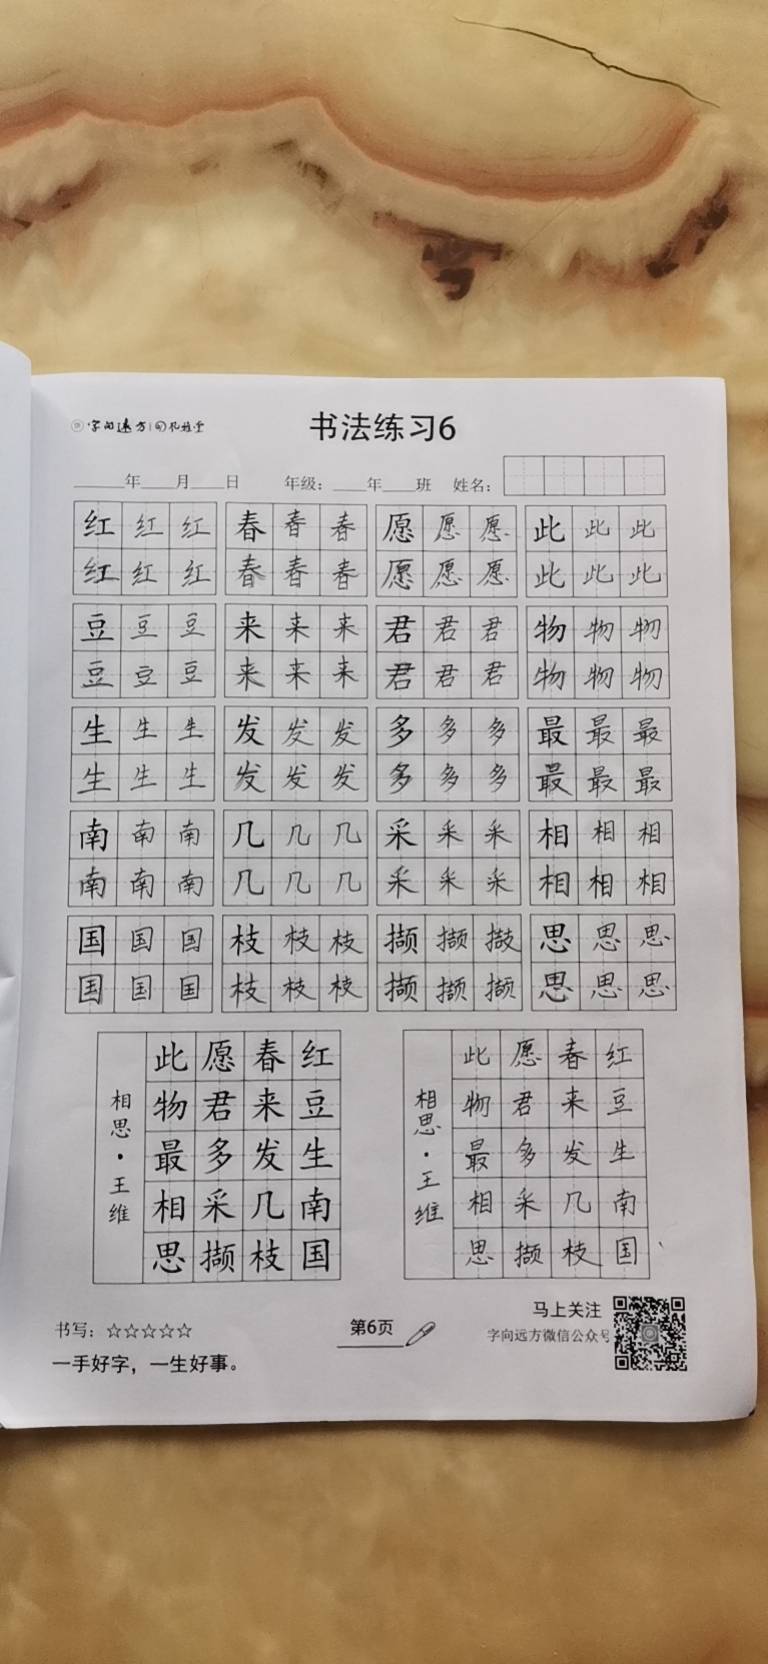 字向远方
书法练习6
年 月 日 年级： 年 班 姓名：
红红红 春春春 愿愿愿 此此此
红红红 春春春 愿愿愿 此此此
豆豆豆 来来来 君君君 物物物
豆豆豆 来来来 君君君 物物物
生生生 发发发 多多多 最最最
生生生 发发发 多多多 最最最
南南南 几几几 采采采 相相相
南南南 几几几 采采采 相相相
国国国 枝枝枝 撷撷 思思思
国国国 枝枝枝 撷撷撷 思思思
红豆生南国
春来发几枝
愿君多采撷
此物最相思
相思·王维
红豆生南国
春来发几枝
愿君多采撷
此物最相思
相思·王维
书写：☆☆☆☆☆
一手好字，一生好事。
第6页
马上关注
字向远方微信公众号